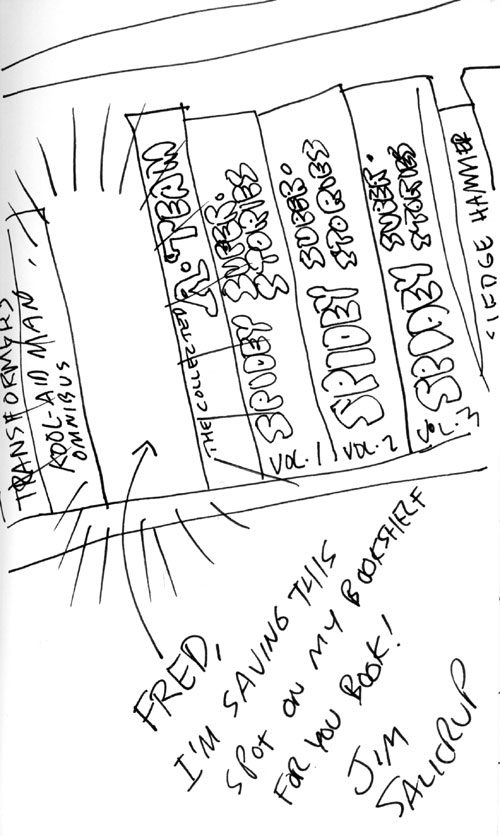 TRANSFORMERS
KOOL-AID MAN
OMNIBUS
THE COLLECTED A-TEAM
SPIDEY SUPER-
STORIES
VOL. 1
SPIDEY SUPER-
STORIES
VOL. 2
SPIDEY SUPER-
STORIES
VOL. 3
SLEDGE HAMMER
FRED,
I'M SAVING THIS
SPOT ON MY BOOKSHELF
FOR YOU BOOK!
JIM
SALICRUP